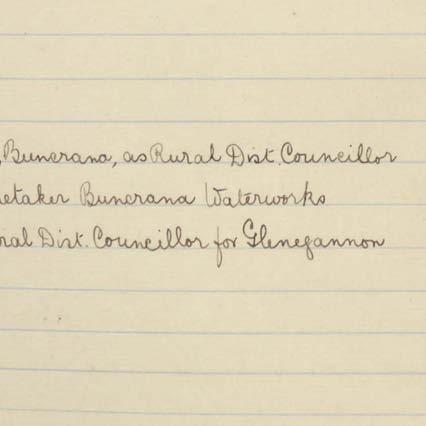 , Buncrana, as Rural Dist. Councillor
etaker Buncrana Waterworks
ral Dist. Councillor for Glenegannon